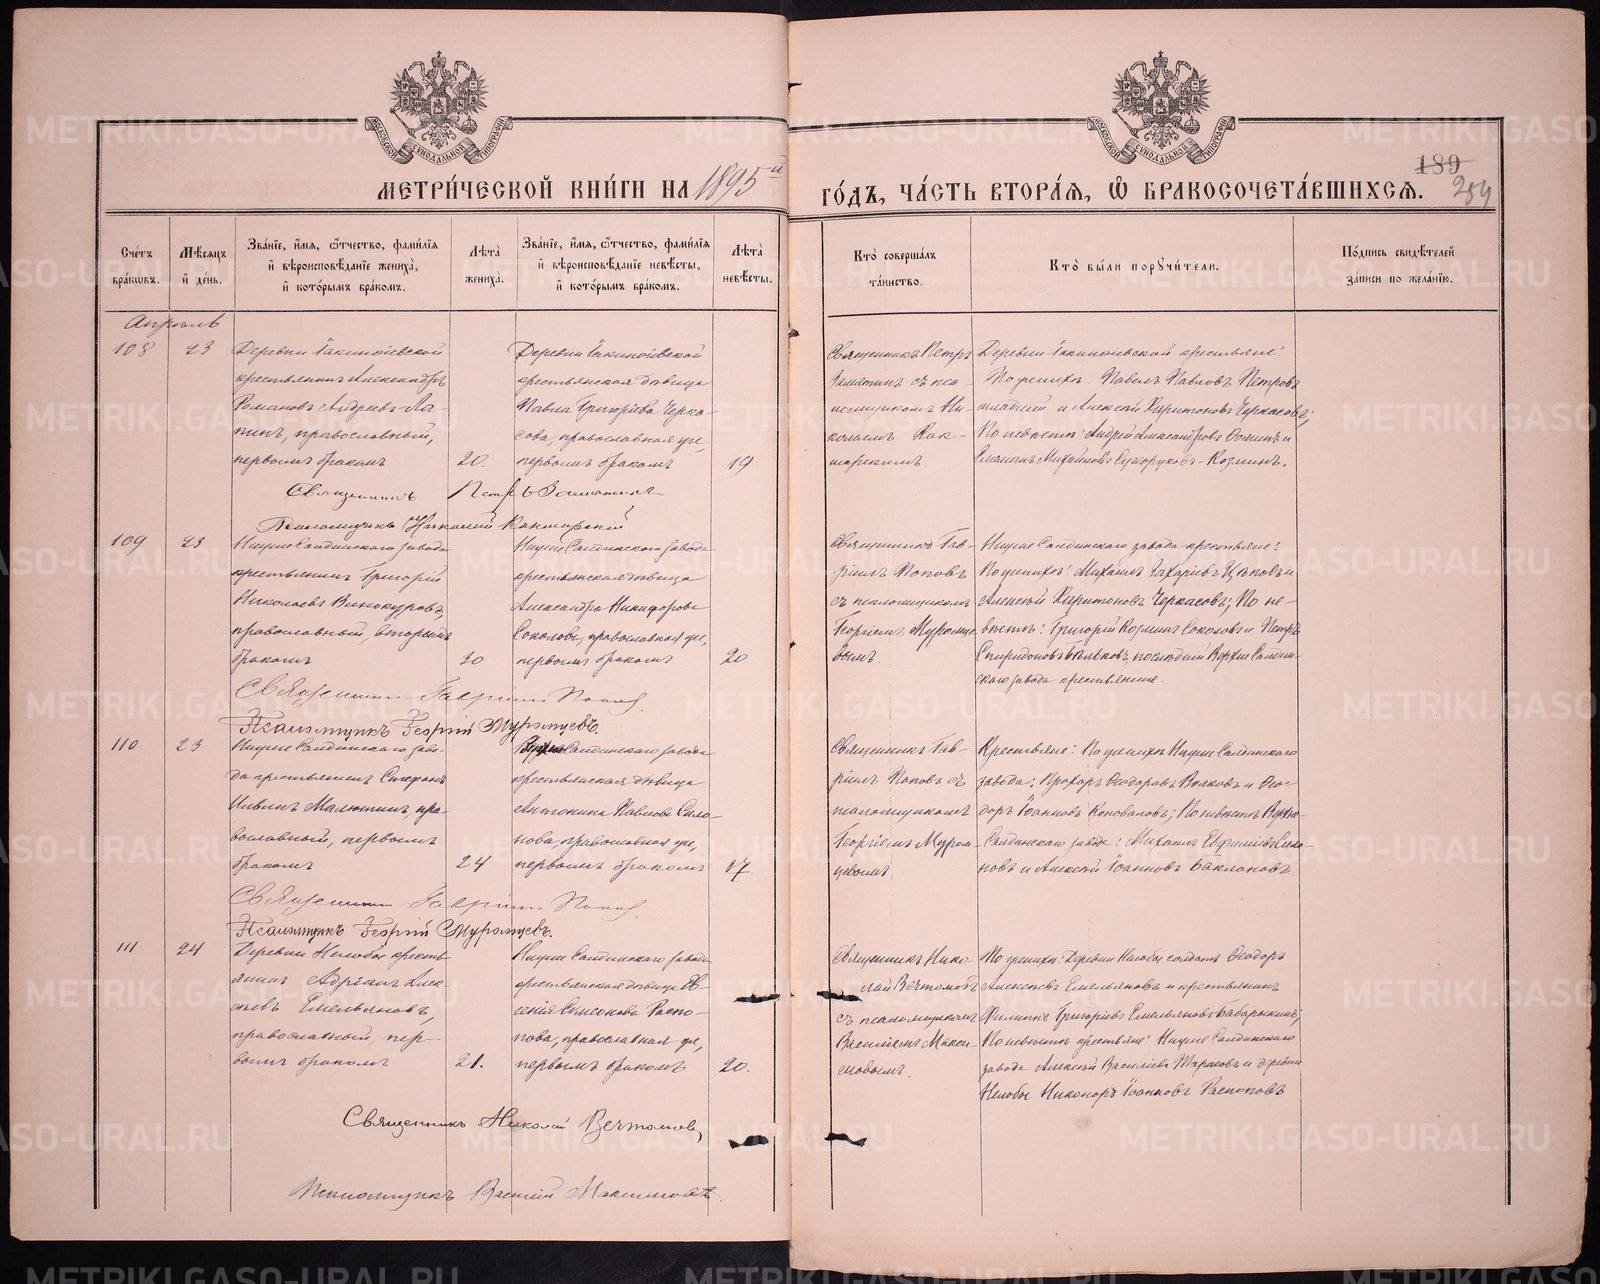 МЕТРИ́ЧЕСКОЙ КНИ́ГИ НА 1895й ГО́ДЪ, ЧА́СТЬ ВТОРА́Я, Ѽ БРАКОСОЧЕТА́ВШИХСЯ.
189
Сче́тъ бра́ковъ.
Мѣ́сяцъ и҆ де́нь.
Зва́нїе, и҆́мя, ѻ҆́тчество, фами́лїя и҆ вѣроисповѣ́данїе жениха̀, и҆ кото́рымъ бра́комъ.
Лѣ́та жениха̀.
Зва́нїе, и҆́мя, ѻ҆́тчество, фами́лїя и҆ вѣроисповѣ́данїе невѣ́сты, и҆ кото́рымъ бра́комъ.
Лѣ́та невѣ́сты.
Кто̀ соверша́лъ та́инство.
Кто̀ бы́ли порꙋчи́тели.
По́дпись свидѣ́телей за́писи по жела́нїю.
Апрѣль
108
23
Деревни
крестьянинъ Александръ
Романовъ Андреевъ Ла-
пинъ, православный,
первымъ бракомъ
20.
Деревни
крестьянская дѣвица
Павла Григорiева Черка-
сова, православная же,
первымъ бракомъ
19
Священникъ Петръ
Замятинъ съ пса-
ломщикомъ Ни-
колаемъ
Деревни крестьяне:
По женихѣ: Павелъ Павловъ Петровъ
младшiй и Алексѣй Харитоновъ Черкасовъ;
По невѣстѣ: Андрей Александровъ и
Михайловъ Сухоруковъ-Козминъ.
Священникъ Петръ Замятинъ
Псаломщикъ Николай
109
23
Нижне Салдинскаго завода
крестьянинъ Григорiй
Николаевъ Винокуровъ,
православный, вторымъ
бракомъ
30
Нижне Салдинскаго завода
крестьянская дѣвица
Александра Никифорова
Соколова, православная же,
первымъ бракомъ
20
Священникъ Гав-
рiилъ Поповъ
съ псаломщикомъ
Георгiемъ Муромце-
вымъ
Нижне Салдинскаго завода крестьяне:
По женихѣ: Михаилъ Захарiевъ Цѣповъ и
Алексѣй Харитоновъ Черкасовъ; По не-
вѣстѣ: Григорiй Козминъ Соколовъ и Петръ
Спиридоновъ Бѣльковъ, послѣднiй Верхне Салдин-
скаго завода крестьяне.
Священникъ Гаврiилъ Поповъ
Псаломщикъ Георгiй Муромцевъ.
110
23
Нижне Салдинскаго заво-
да крестьянинъ Стефанъ
Ильинъ Малютинъ, пра-
вославный, первымъ
бракомъ
24
Верхне Салдинскаго завода
крестьянская дѣвица
Антонина Павлова Сило-
нова, православная же,
первымъ бракомъ
17.
Священникъ Гав-
рiилъ Поповъ съ
псаломщикомъ
Георгiемъ Муром-
цевымъ
Крестьяне: По женихѣ Нижне Салдинскаго
завода: Прохоръ Ѳеодоровъ Волковъ и Ѳео-
доръ Iоанновъ Коноваловъ; По невѣстѣ Верхне-
Салдинскаго завода: Михаилъ Евфимiевъ Сило-
новъ и Алексѣй Iоанновъ Баклановъ.
Священникъ Гаврiилъ Поповъ
Псаломщикъ Георгiй Муромцевъ.
111
24
Деревни Нелобы кресть-
янинъ Адрiанъ Алек-
сѣевъ Емельяновъ,
православный, пер-
вымъ бракомъ
21.
Нижне Салдинскаго завода
крестьянская дѣвица Ев-
генiя Симеонова Распо-
пова, православная же,
первымъ бракомъ
20.
Священникъ Нико-
лай Вечтомовъ
съ псаломщикомъ
Василiемъ Макси-
мовымъ.
По женихѣ: Деревни Нелобы солдатъ Ѳеодоръ
Алексѣевъ Емельяновъ и крестьянинъ
Филиппъ Григорiевъ Емельяновъ Бабарыкинъ;
По невѣстѣ крестьяне: Нижне Салдинскаго
завода Алексѣй Василiевъ Тарасовъ и деревни
Нелобы Никоноръ Iоанновъ Распоповъ
Священникъ Николай Вечтомовъ
Псаломщикъ Василiй Максимовъ.